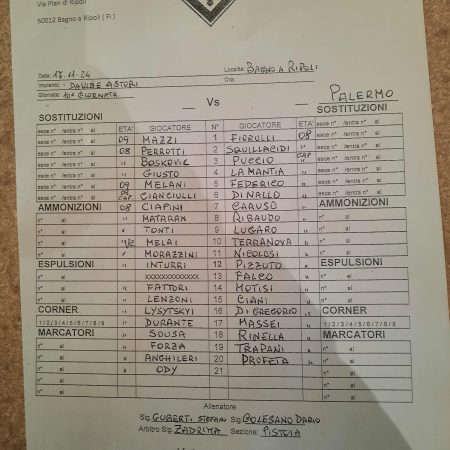 Via Pian di Ripoli
50012 Bagno a Ripoli ( FI )
Data: 17.11.24 Località: BAGNO A RIPOLI
Impianto: DAVIDE ASTORI Ora:
Giornata: 10ª GIORNATA
Vs PALERMO
SOSTITUZIONI SOSTITUZIONI
esce n° /entra n° al ETA' GIOCATORE N° GIOCATORE ETA' esce n° /entra n° al
esce n° /entra n° al 09 MAZZI 1 FIORULLI 08 esce n° /entra n° al
esce n° /entra n° al 08 PERROTTI 2 SQUILLACIDI " esce n° /entra n° al
esce n° /entra n° al " BOSKOVIC 3 PUCCIO CAP esce n° /entra n° al
esce n° /entra n° al " GIUSTO 4 LA MANTIA " esce n° /entra n° al
esce n° /entra n° al 09 MELANI 5 FEDERICO " esce n° /entra n° al
esce n° /entra n° al 09 CAP CIANCIULLI 6 DI NALLO " esce n° /entra n° al
AMMONIZIONI 08 CIAPINI 7 CARUSO " AMMONIZIONI
n° al " MATARAN 8 RIBAUDO " n° al
n° al " TONTI 9 LUGARO " n° al
n° al MELAI 10 TERRANOVA " n° al
n° al " MORAZZINI 11 NICOLOSI " n° al
ESPULSIONI " INTURRI 12 PIZZUTO " ESPULSIONI
n° al xxxxxxxxxxxxx 13 FALCO " n° al
n° al " FATTORI 14 MOTISI " n° al
n° al " LENZONI 15 CIANI " n° al
CORNER " LYSYTSKYI 16 DI GREGORIO " CORNER
1/2/3/4/5/6/7/8/9 " DURANTE 17 MASSEI " 1/2/3/4/5/6/7/8/9
MARCATORI " SOUSA 18 RINELLA " MARCATORI
n° al " FORZA 19 TRAPANI " n° al
n° al " ANGHILERI 20 PROFETA " n° al
n° al " ODY 21 n° al
Allenatore
Sig. GUBERTI STEFANO Sig. COLESANO DARIO
Arbitro Sig. ZADRIMA Sezione: PISTOIA